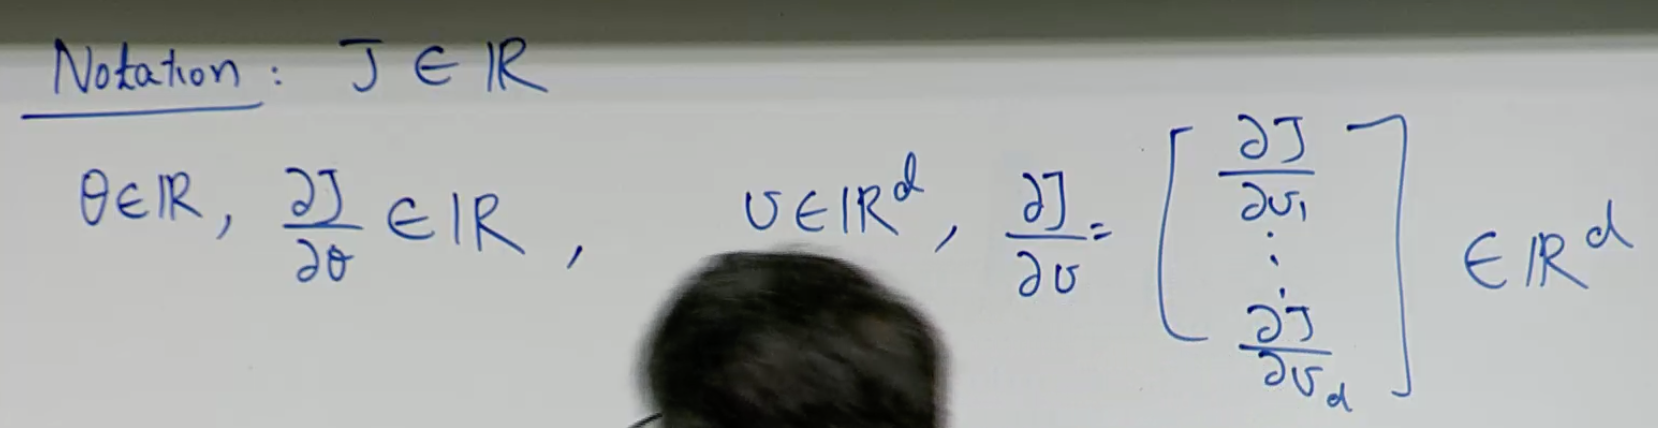 Notation : J ∈ ℝ
θ ∈ ℝ, ∂J/∂θ ∈ ℝ, v ∈ ℝ^d, ∂J/∂v = [∂J/∂v₁ ⋮ ∂J/∂v_d] ∈ ℝ^d